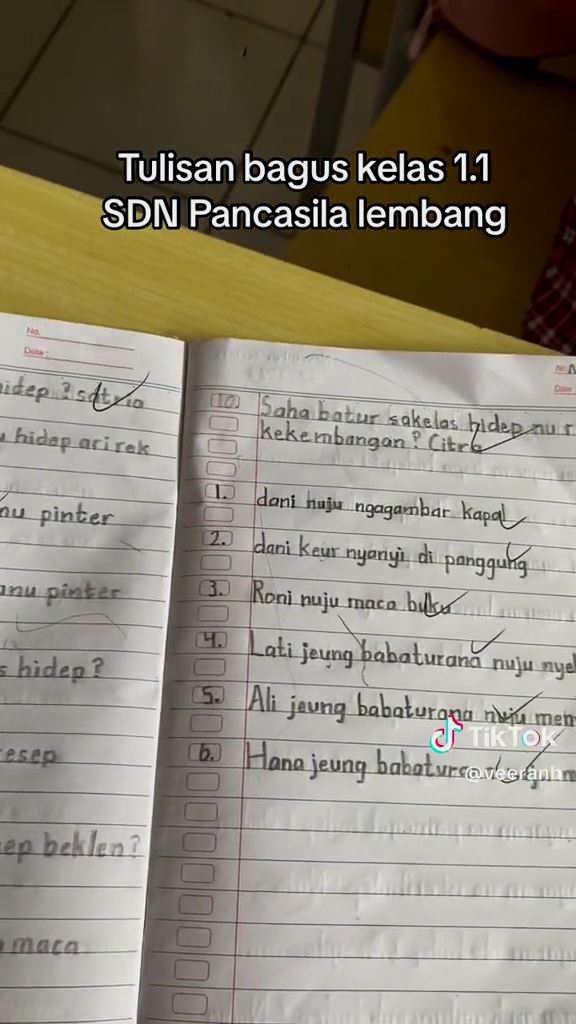 Tulisan bagus kelas 1.1
SDN Pancasila lembang
No.
Date :
hidep ? satria
hidep ari rek
nu pinter
anu pinter
hidep?
resep
beklen?
maca
No
Date
10. Saha batur sakelas hidep nu
kekembangan? Citra
1. dani nuju ngagambar kapal
2. dani keur nyanyi di panggung
3. Roni nuju maca buku
4. Lati jeung babaturana nuju
5. Ali jeung babaturana nuju
6. Hana jeung
TikTok
@veeranh